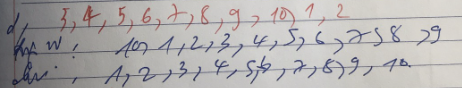 d, 3, 4, 5, 6, 7, 8, 9, 10, 1, 2
10, 1, 2, 3, 4, 5, 6, 7, 8, 9
1, 2, 3, 4, 5, 6, 7, 8, 9, 10